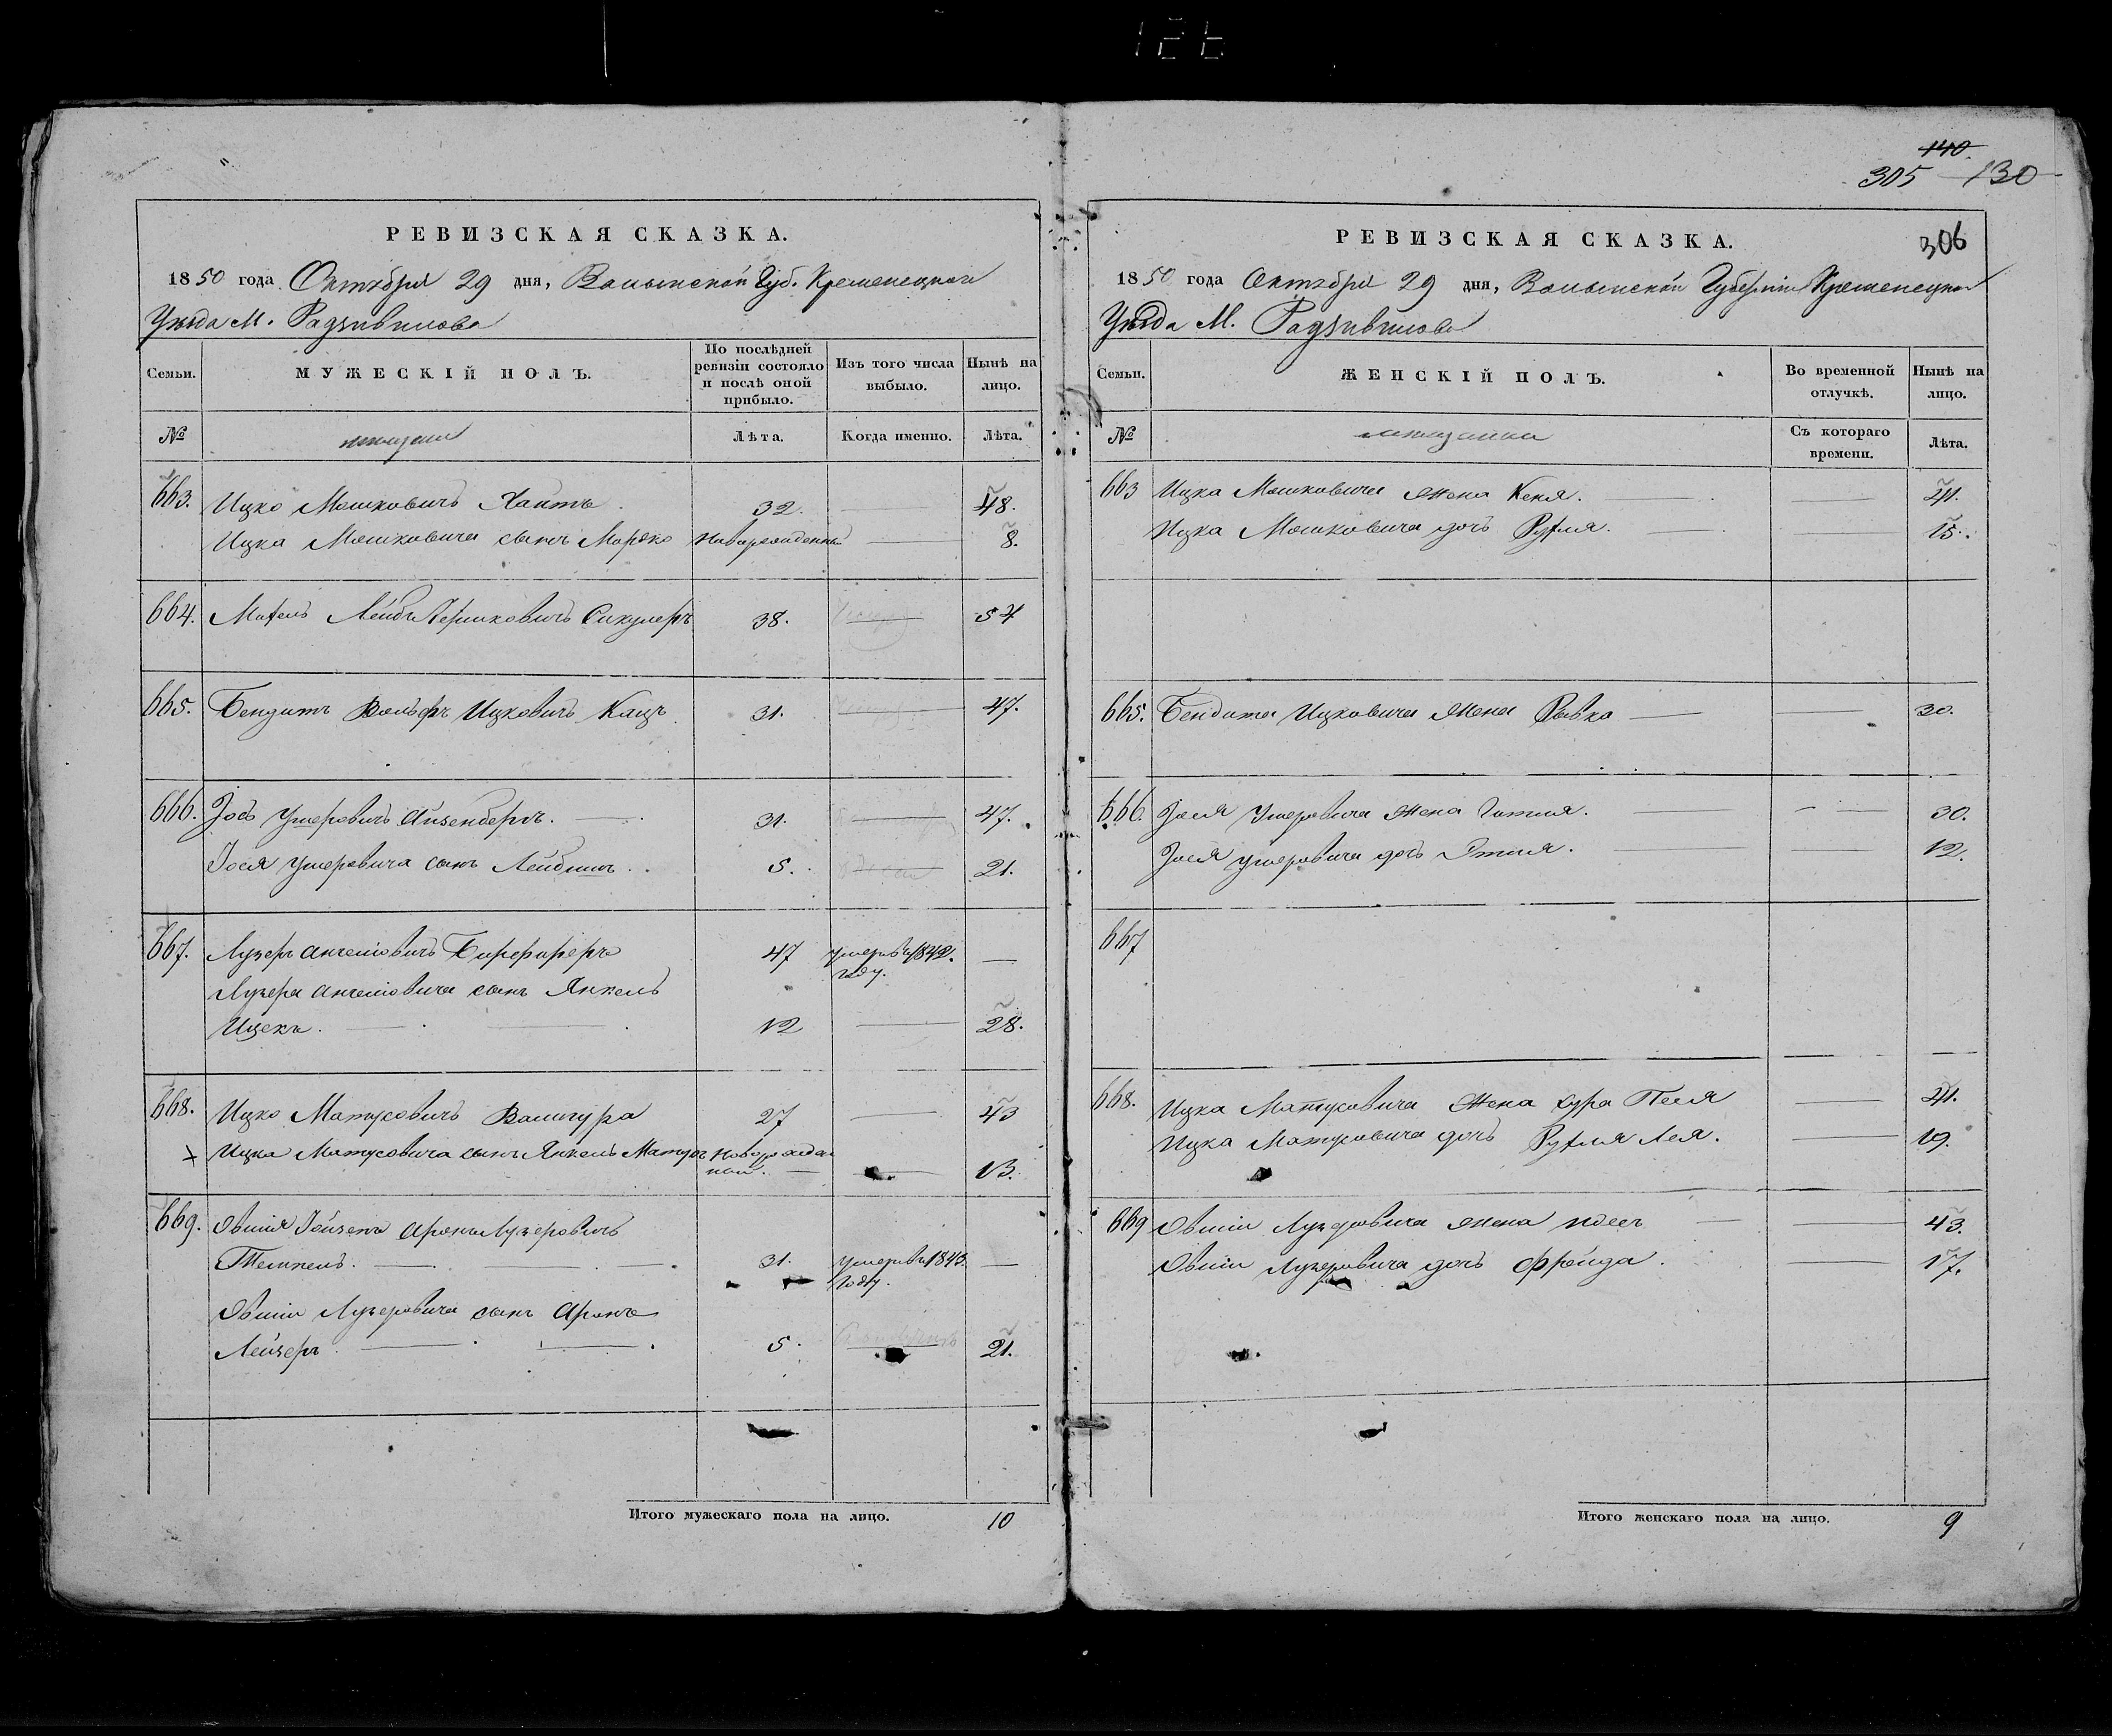 140.
305 130
РЕВИЗСКАЯ СКАЗКА.
1850 года Октября 29 дня, Волынской Губ. Кременецкаго
Уѣзда М. Радзивилова
Семьи. МУЖЕСКІЙ ПОЛЪ. По послѣдней ревизіи состояло и послѣ оной прибыло. Изъ того числа выбыло. Нынѣ на лицо.
№ мещане Лѣта. Когда именно. Лѣта.
663. Ицко Мошковичъ 32. 48.
Ицка Мошковича сынъ Мордко новорожденный 8.
664. Лейбъ Гершковичъ 38. 54
665. Бендитъ Вольфъ Ицковичъ Кацъ 31. 47.
666. Іось Ушеровичъ Айзенбергъ. 31. 47.
Іося Ушеровича сынъ Лейбишъ. 5. 21.
667. Лузеръ Анчелiовичъ 47 умеръ въ 1842. году. —
Лузера Анчелiовича сынъ Янкель
Ицекъ. 12 28.
668. Ицко Матусовичъ 27 43
Ицка Матусовича сынъ Янкель Матусъ новорожден
ный. 13.
669. Овшія Аронъ Лузеровичъ
Темпель. 31. умеръ въ 1843. году. —
Овшіи Лузеровича сынъ Аронъ
Лейзеръ. 5. 21.
Итого мужескаго пола на лицо. 10
РЕВИЗСКАЯ СКАЗКА. 306
1850 года Октября 29 дня, Волынской Губерніи Кременецкаго
Уѣзда М. Радзивилова
Семьи. ЖЕНСКІЙ ПОЛЪ. Во временной отлучкѣ. Нынѣ на лицо.
№ мещанки Съ котораго времени. Лѣта.
663 Ицка Мошковича жена Кеня. 41.
Ицка Мошковича дочь Рухля. 15.
665. Бендита Ицковича жена Рывка 30.
666. Іося Ушеровича жена Гитля. 30.
Іося Ушеровича дочь Этля. 12.
667
668. Ицка Матусовича жена Сура Песя 41.
Ицка Матусовича дочь Рухля Лея. 19.
669 Овшіи Лузеровича жена 43.
Овшіи Лузеровича дочь Фрейда. 17.
Итого женскаго пола на лицо. 9